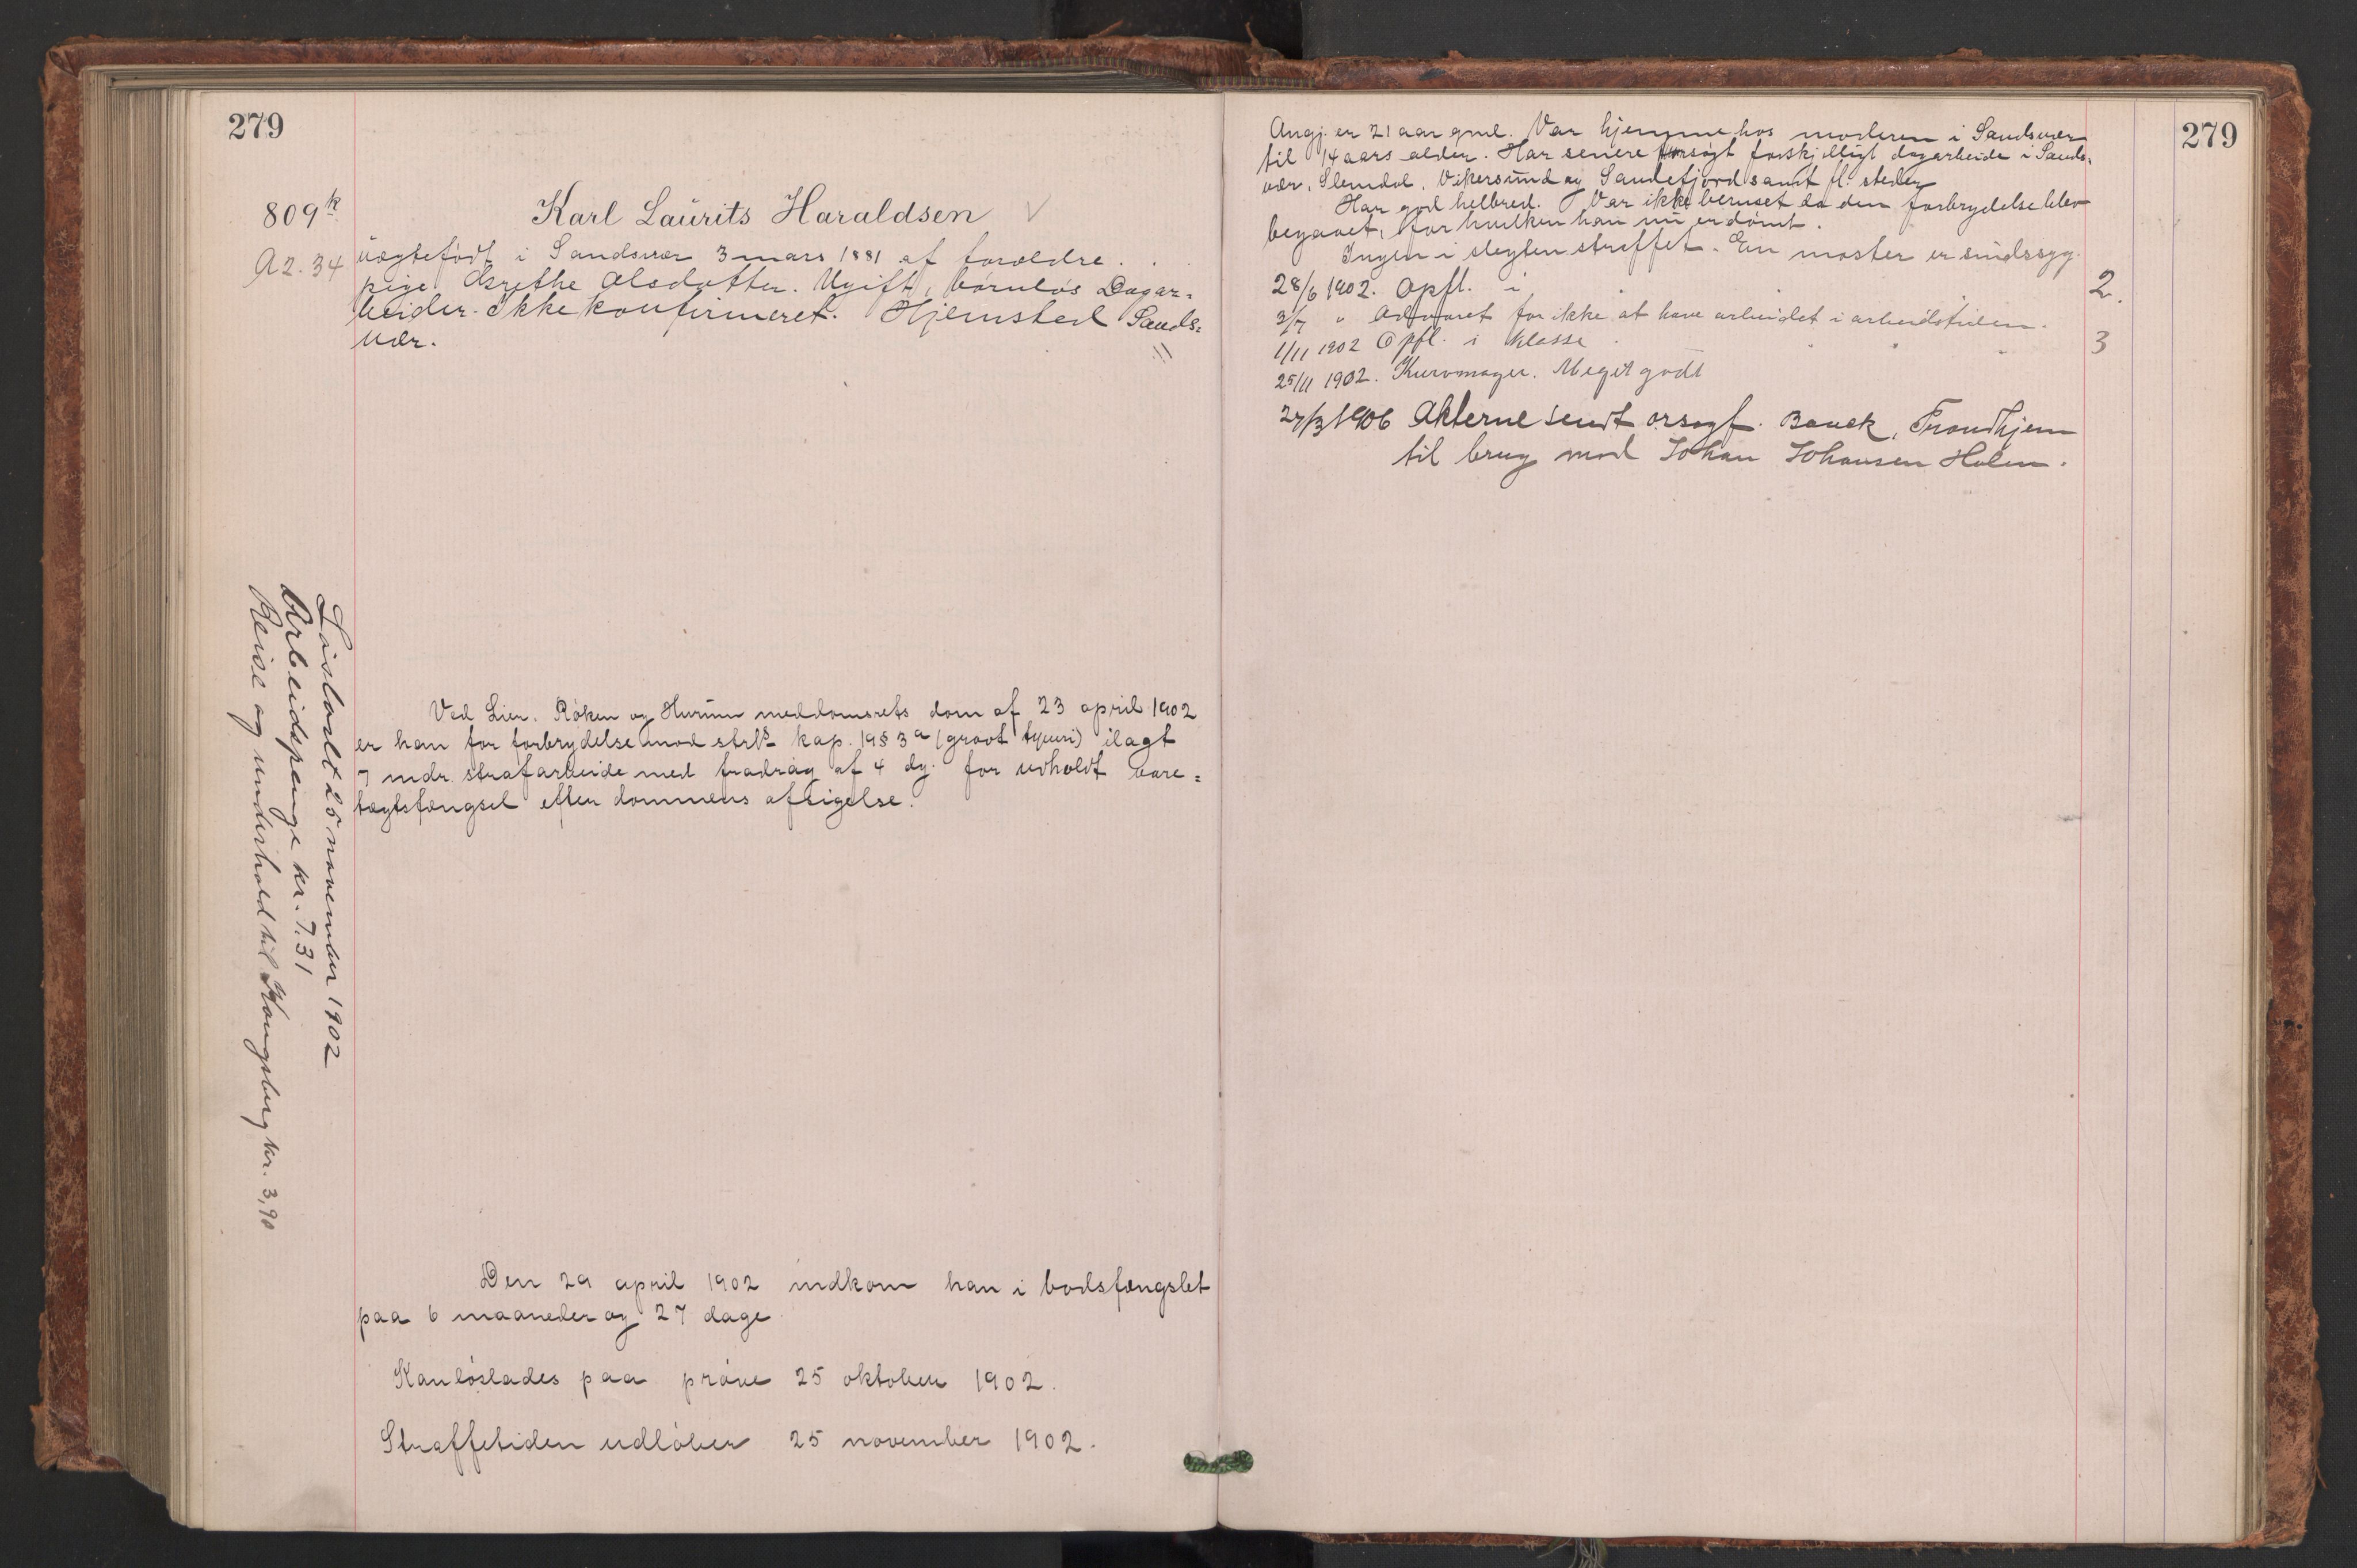 279
809k
A2. 34
Karl Laurits Haraldsen
uægtefødt i Sandsvær 3 mars 1881 af forældre.
pige Grethe Olsdatter. Ugift, børnløs Dagar=
beider. Ikke konfirmeret. Hjemsted Sands=
vær.
Løsladt 25 november 1902
Arbeidspenge kr. 7.31
Reise og underhold til Kongsberg kr. 3,90
Ved Lier, Røken og Hurum meddomsrets dom af 23 april 1902
er han for forbrydelse mod strfl kap. 19 § 3a (grovt tyveri) ilagt
7 mdr. strafarbeide med fradrag af 4 dg. for udholdt vare=
tægtsfængsel efter dommens afsigelse.
Den 29 april 1902 indkom han i bodsfængslet
paa 6 maaneder og 27 dage
Kan løslades paa prøve 25 oktober 1902.
Straffetiden udløber 25 november 1902.
279
Angj. er 21 aar gml. Var hjemme hos moderen i Sandsvær
til 14 aars alder. Har senere forsøgt forskjelligt dagarbeide i Sands=
vær, Slemdal, Vikersund og Sandefjord samt fl. steder
Har god helbred. Var ikke beruset da den forbrydelse blev
begaaet, for hvilken han nu er dømt.
Ingen i slegten straffet. En moster er sindssyg.
28/6 1902. Opfl. i " " 2.
3/7 " Advaret for ikke at have arbeidet i arbeidstiden.
1/11 1902 Opfl. i klasse 3
25/11 1902. Kurvmager. Meget godt
27/3 1906 Akterne sendt orsagf. Bauck, Trondhjem
til brug mod Johan Johansen Holen.